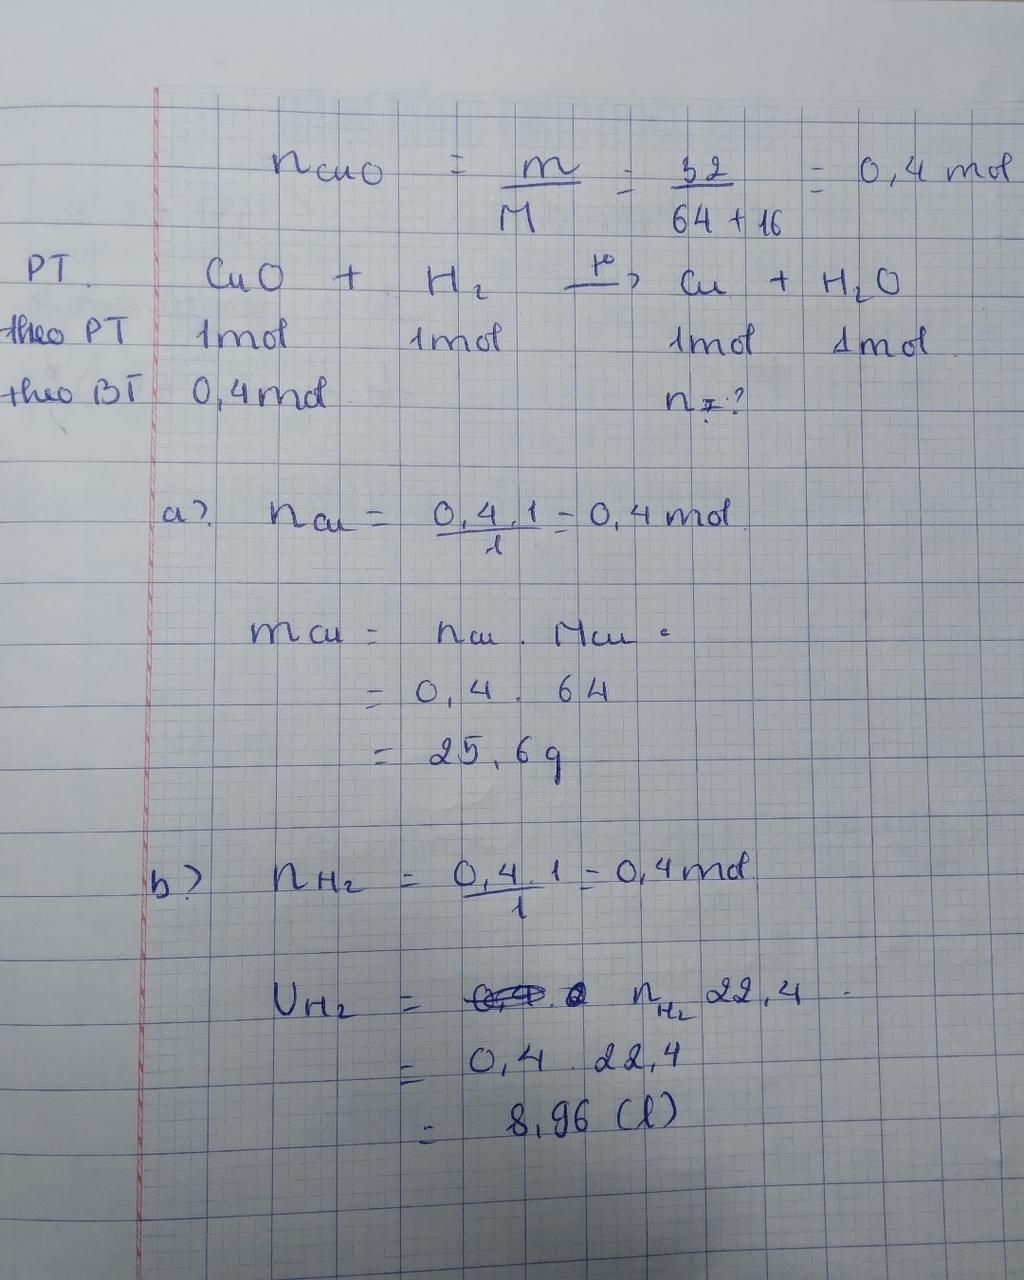 nCuO = m/M = 32/(64 + 16) = 0,4 mol
PT. CuO + H2 —t°→ Cu + H2O
theo PT 1mol 1mol 1mol 1mol
theo BT 0,4mol n=?
a). nCu = 0,4.1/1 = 0,4 mol
mCu = nCu . MCu =
= 0,4 . 64
= 25,6g
b) nH2 = 0,4.1/1 = 0,4mol
VH2 = nH2 22,4
= 0,4 . 22,4
= 8,96 (l)